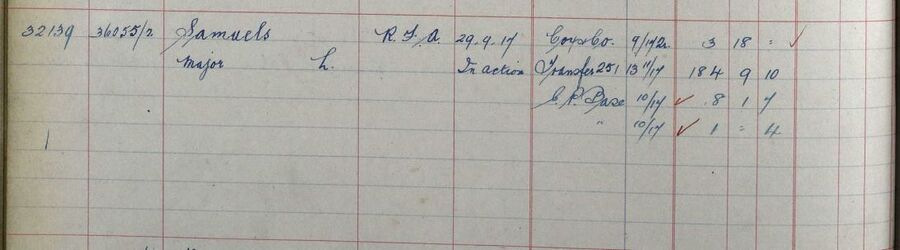 32139 36055/2 Samuels R.F.A. 29.9.17 Cox & Co. 9/17 3 18 "
Major L. In action Transfer 251 13 11/17 184 9 10
E.P. Base 10/17 8 1 7
" 10/17 1 " 4